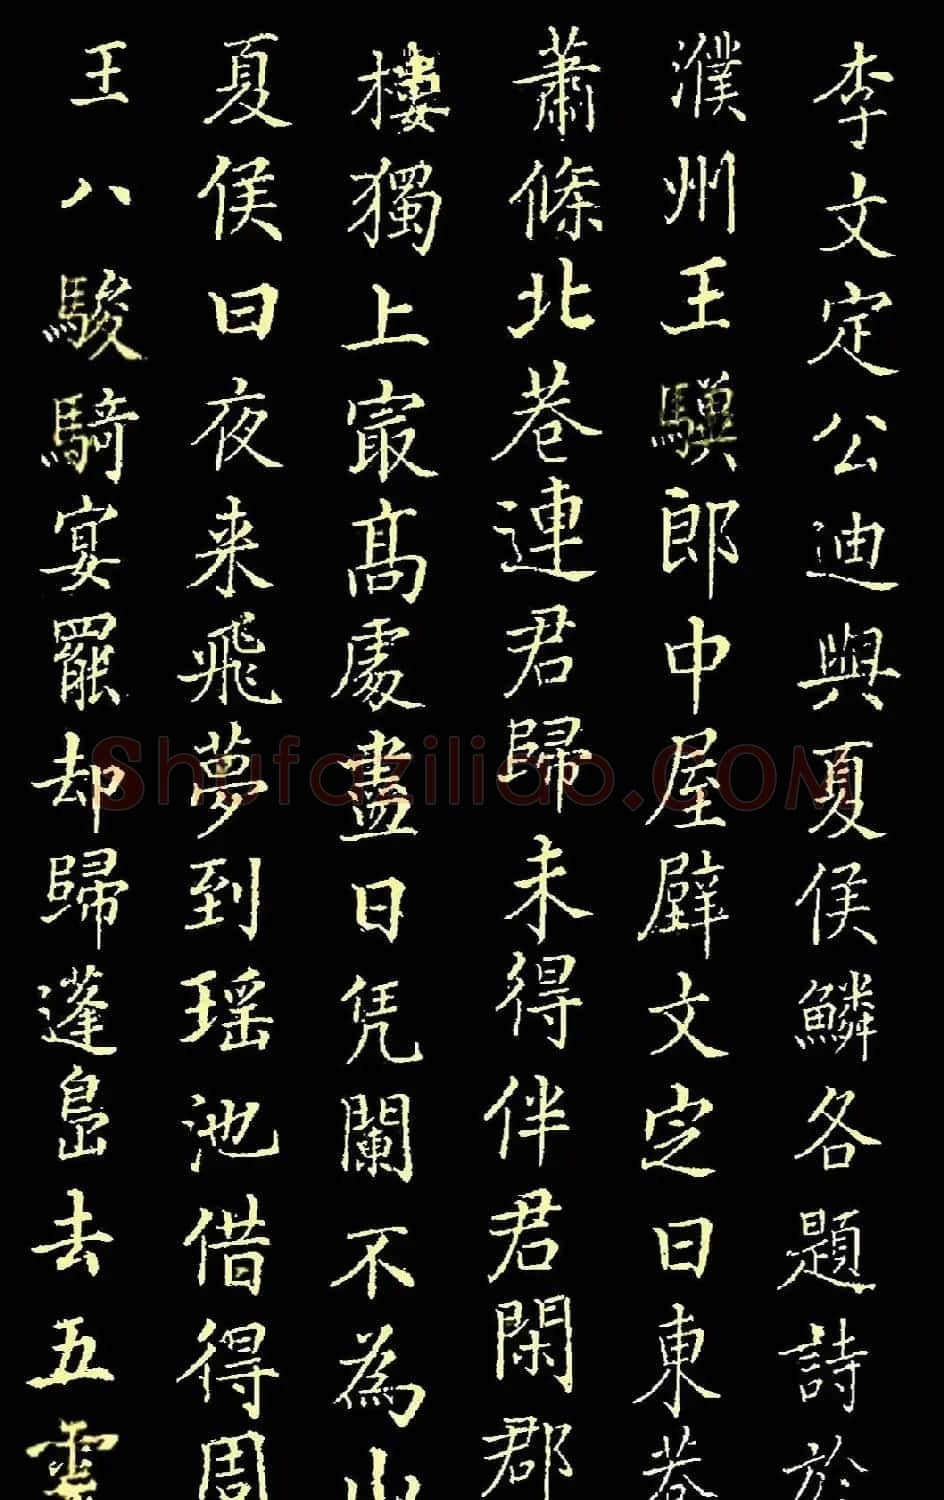 李文定公迪與夏侯鱗各題詩於
濮州王驥郎中屋壁文定曰東巷
蕭條北巷連君歸未得伴君閑郡
樓獨上寂高處盡日凭闌不為山
夏侯曰夜来飛夢到瑶池借得周
王八駿騎宴罷却歸蓬島去五雲
Shufaziliao.COM